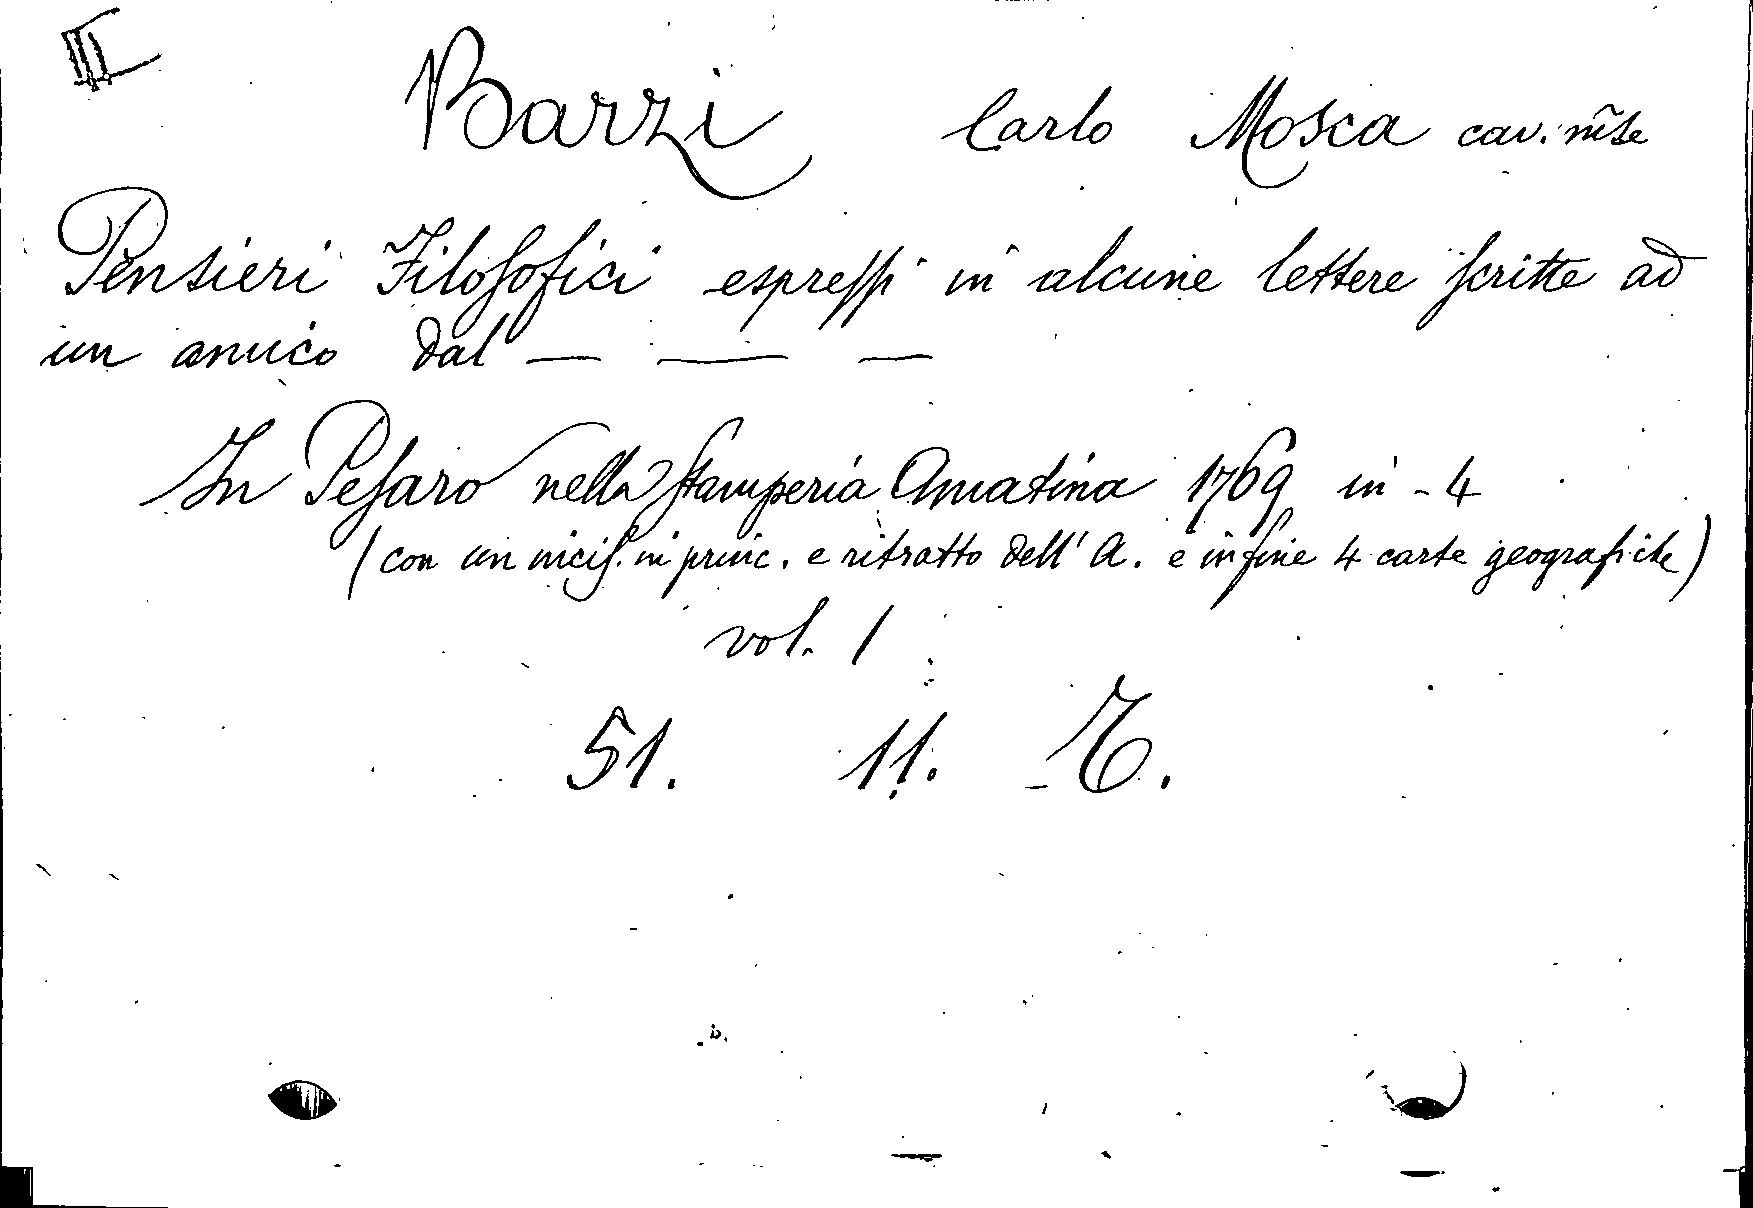 Barzi Carlo Mosca cav. m̃se
Pensieri Filosofici espressi in alcune lettere scritte ad
un amico dal — — —
In Pesaro nella Stamperia Amatina 1769 in-4
(con un incis. in princ. e ritratto dell' A. e in fine 4 carte geografiche)
vol. 1
51. 11.